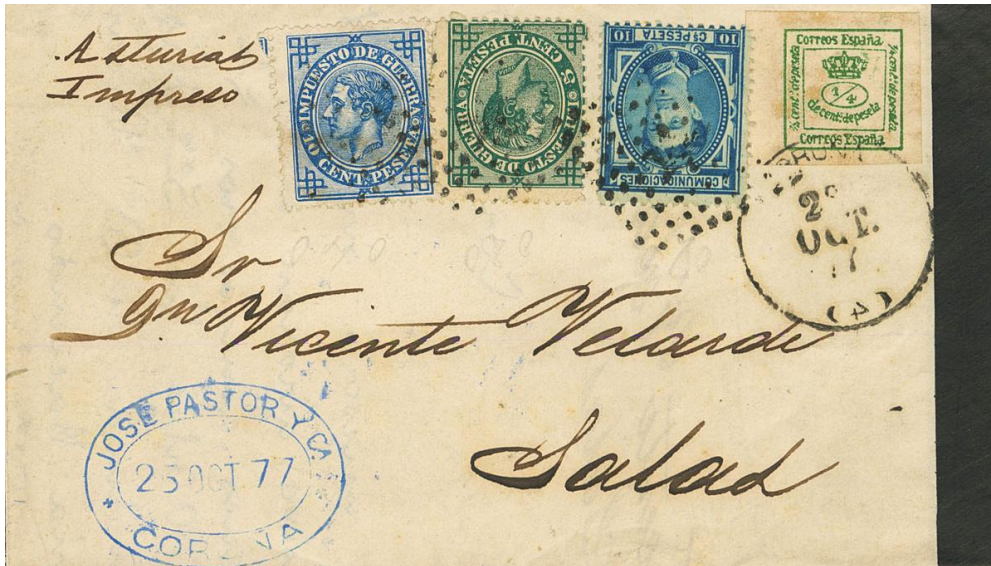 Asturias
Impreso
IMPUESTO DE GUERRA
10 CENT. PESETA
IMPUESTO DE GUERRA
5 CENT. PESETA
COMUNICACIONES
10 Cs PESETA 10
Correos España
½ cent. de peseta
½ cent. de peseta
1/4
de cent. de peseta
Correos España
CORUÑA
OCT.
77
(4)
Sr
Dn Vicente Velarde
Salas
JOSE PASTOR Y CA
25 OCT 77
CORUÑA